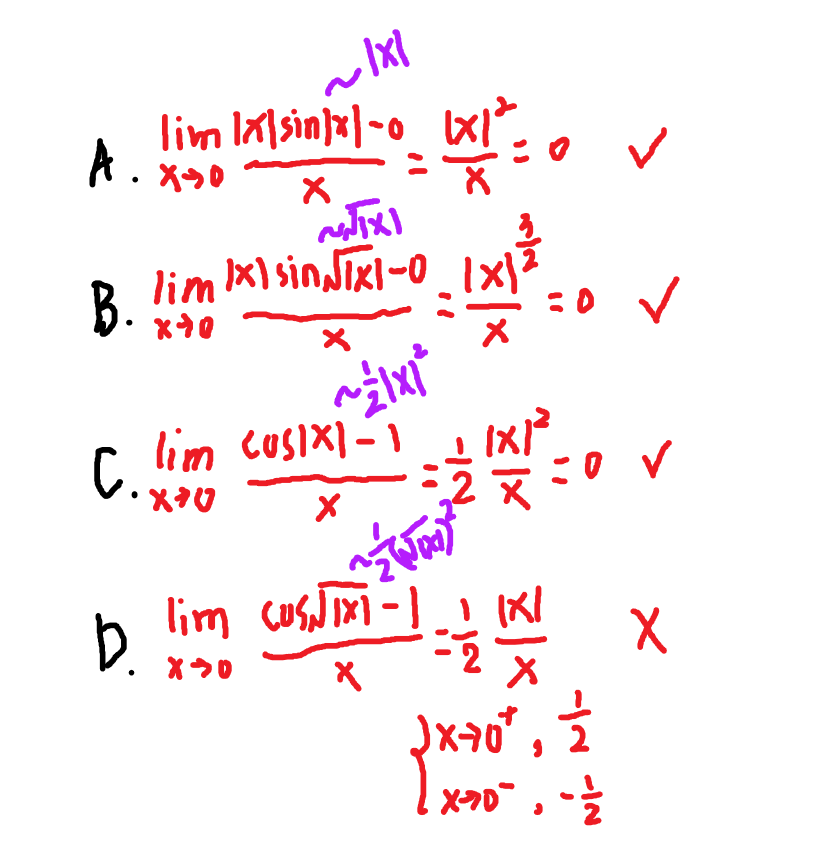 ~|x|
A. lim x→0 |x|sin|x|-0 / x = |x|² / x = 0 ✓
~√|x|
B. lim x→0 |x|sin√|x|-0 / x = |x|^(3/2) / x = 0 ✓
~1/2|x|²
C. lim x→0 cos|x|-1 / x = 1/2 |x|² / x = 0 ✓
~1/2(√|x|)²
D. lim x→0 cos√|x|-1 / x = 1/2 |x| / x ✗
{ x→0⁺, 1/2
x→0⁻, -1/2